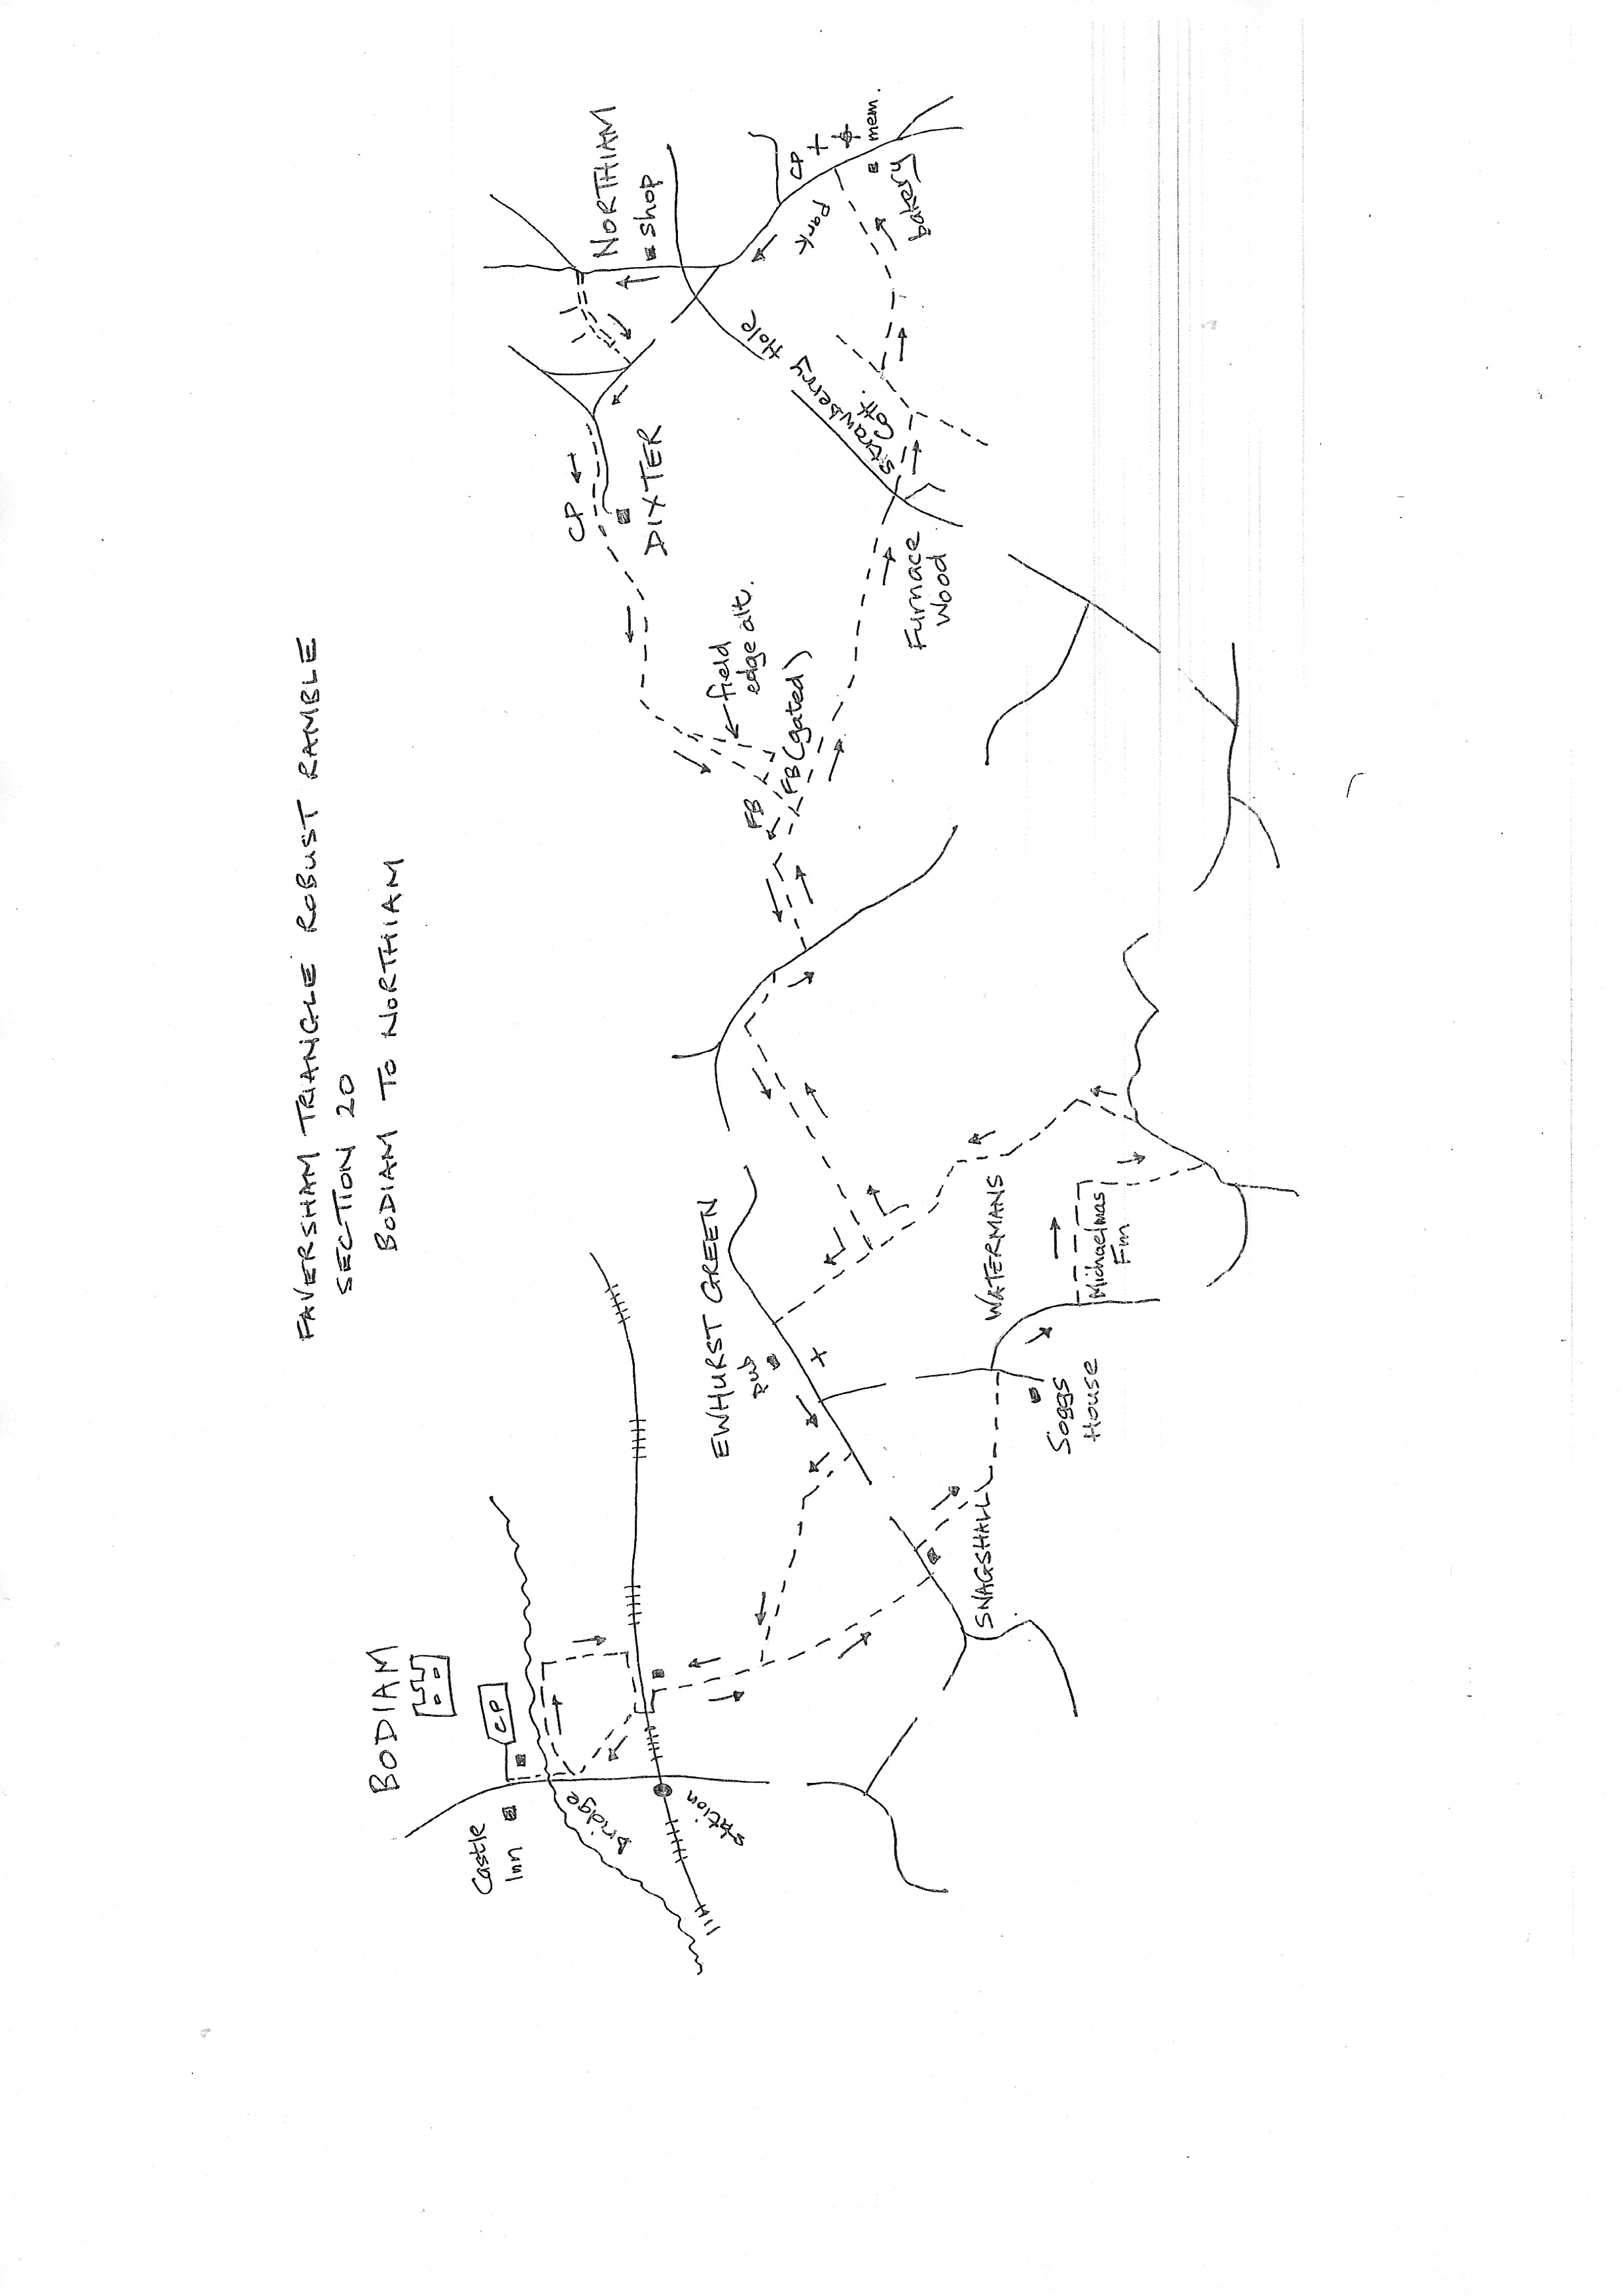 FAVERSHAM TRIANGLE ROBUST RAMBLE
SECTION 20
BODIAM TO NORTHIAM
BODIAM
CP
Castle
Inn
bridge
station
EWHURST GREEN
pub
SNAGSHALL
Soggs
House
WATERMANS
Michaelmas
Fm
FB
FB (gated)
field
edge alt.
Furnace
Wood
Strawberry Hole
Cott.
CP
DIXTER
NORTHIAM
shop
Park
CP
mem.
bakery